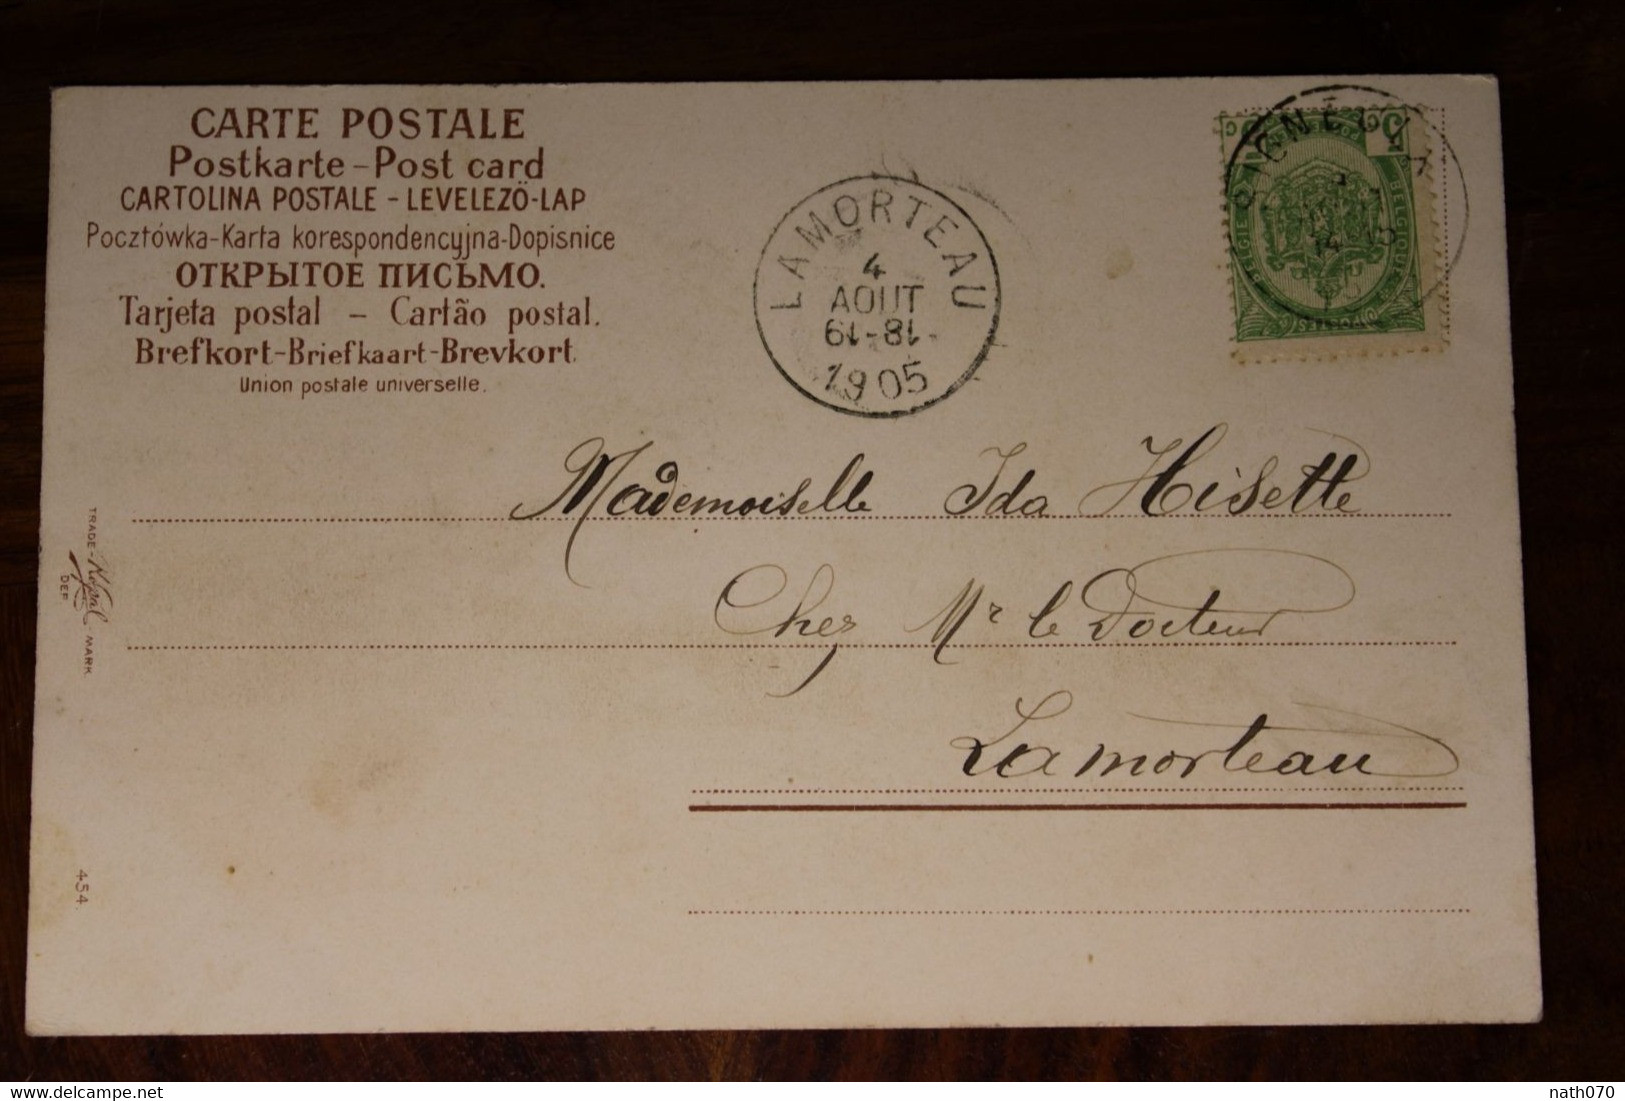 CARTE POSTALE
Postkarte - Post card
CARTOLINA POSTALE - LEVELEZÖ-LAP
Pocztówka-Karta korespondencyjna-Dopisnice
ОТКРЫТОЕ ПИСЬМО.
Tarjeta postal - Cartão postal.
Brefkort-Briefkaart-Brevkort.
Union postale universelle.
LAMORTEAU
4
AOUT
18-19
1905
5
BELGIQUE
Mademoiselle Ida Hisette
Chez Mr le Docteur
Lamorteau
TRADE - MARK
DEP
454.
nath070